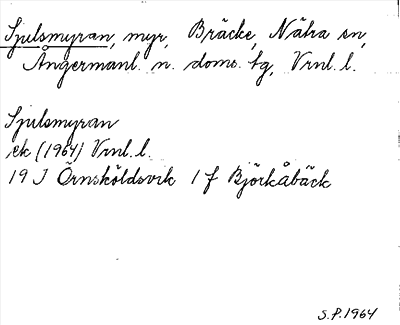 Sjulsmyran, myr, Bräcke, Nätra sn,
Ångermanl. n. doms. tg, Vrnl. l.
Sjulsmyran
ek (1964) Vrnl. l.
19 J Örnsköldsvik 1 f Björkåbäck
S.P. 1964